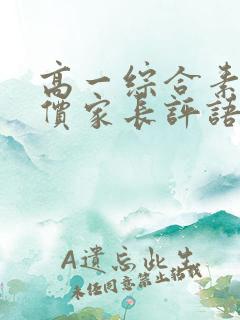 高一綜合素
價家長評語
A遺忘此生
未经同意禁止搭我